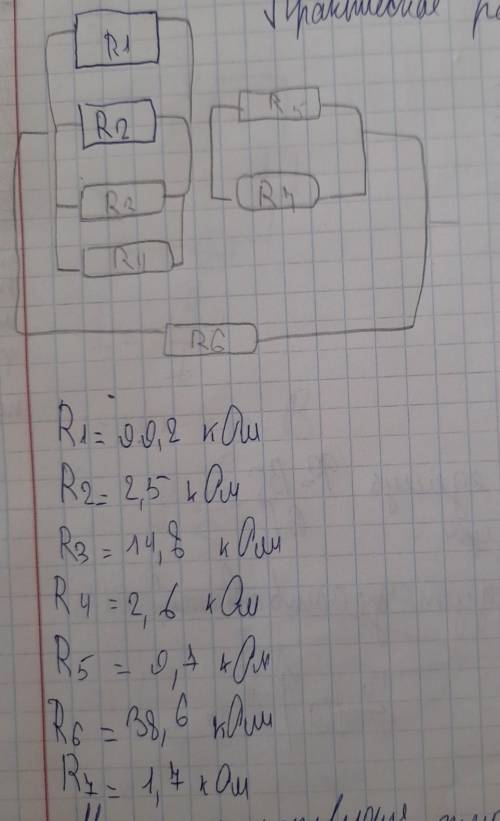 Практическая
R1
R2
R5
R3
R7
R4
R6
R1 = 99,2 кОм
R2 = 2,5 кОм
R3 = 14,8 кОм
R4 = 2,6 кОм
R5 = 9,7 кОм
R6 = 38,6 кОм
R7 = 1,7 кОм